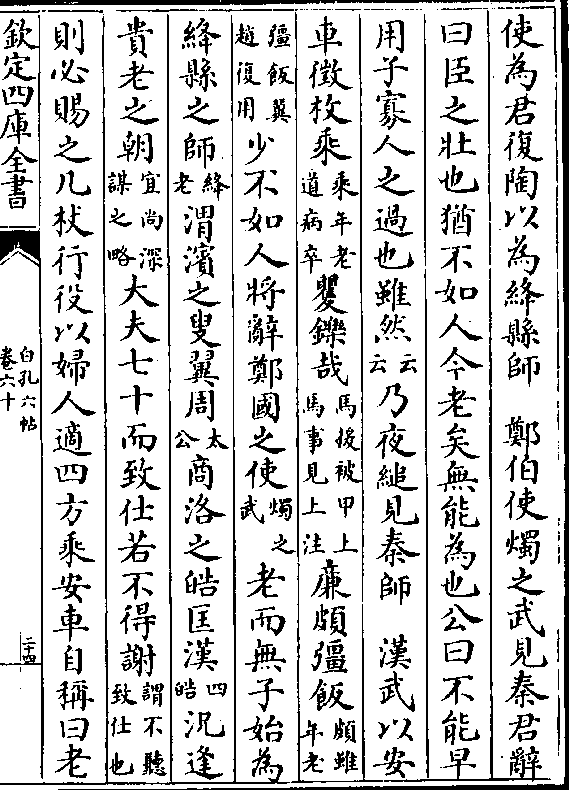 使為君復陶以為絳縣師　鄭伯使燭之武見秦君辭
曰臣之壯也猶不如人今老矣無能為也公曰不能早
用子寡人之過也雖然云云乃夜縋見秦師　漢武以安
車徵枚乘乘年老道病卒矍鑠哉馬援被甲上馬事見上注廉頗彊飯頗雖年老
彊飯冀趙復用少不如人將辭鄭國之使燭之武老而無子始為
絳縣之師絳老渭濱之叟翼周太公商洛之皓匡漢四皓況逢
貴老之朝宜尚深謀之略大夫七十而致仕若不得謝謂不聽致仕也
則必賜之几杖行役以婦人適四方乘安車自稱曰老
欽定四庫全書
白孔六帖
卷六十
二十四